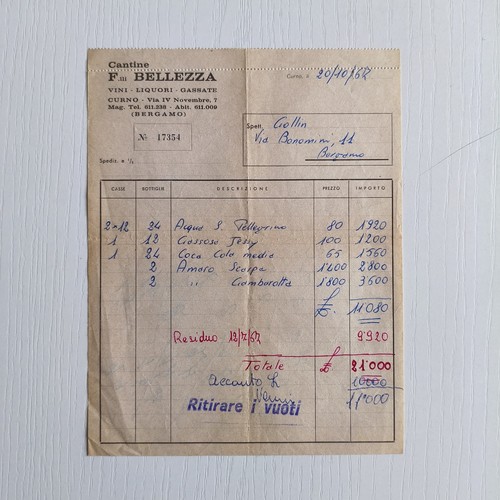 Cantine
F.lli BELLEZZA
VINI - LIQUORI - GASSATE
CURNO - Via IV Novembre, 7
Mag. Tel. 611.238 - Abit. 611.009
(BERGAMO)
Nº 17354
Curno, il 20/10/67
Spett. Gollin
Via Bonomini, 11
Bergamo
Spediz. a ½
CASSE BOTTIGLIE DESCRIZIONE PREZZO IMPORTO
2x12 24 Acqua S. Pellegrino 80 1920
1 12 Gassosa Jessy 100 1'200
1 24 Coca Cola media 65 1'560
2 Amaro Scarpa 1'400 2'800
2 " Gambarotta 1'800 3'600
£. 11'080
Residuo 12/7/67 9'920
Totale £ 21'000
Acconto £ 10'000
11'000
Ritirare i vuoti